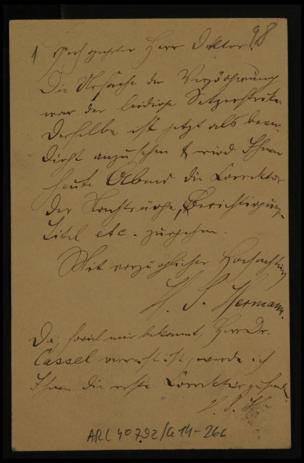 1 Hochgeehrter Herr Doktor! 98
Die Ursache der Verzögerung
war der leidige Setzerstreik.
Derselbe ist jetzt als been-
digt anzusehen & wird Ihnen
heute Abend die Correktur
der Nachträge, Berichtigung,
Titel etc. zugehen.
Mit vorzüglicher Hochachtung
H. S. Hermann.
Da, soviel mir bekannt, Herr Dr.
Cassel verreist ist, werde ich
Ihnen die erste Correktur
H. S. H.
ARC 4° 792/G 14-266